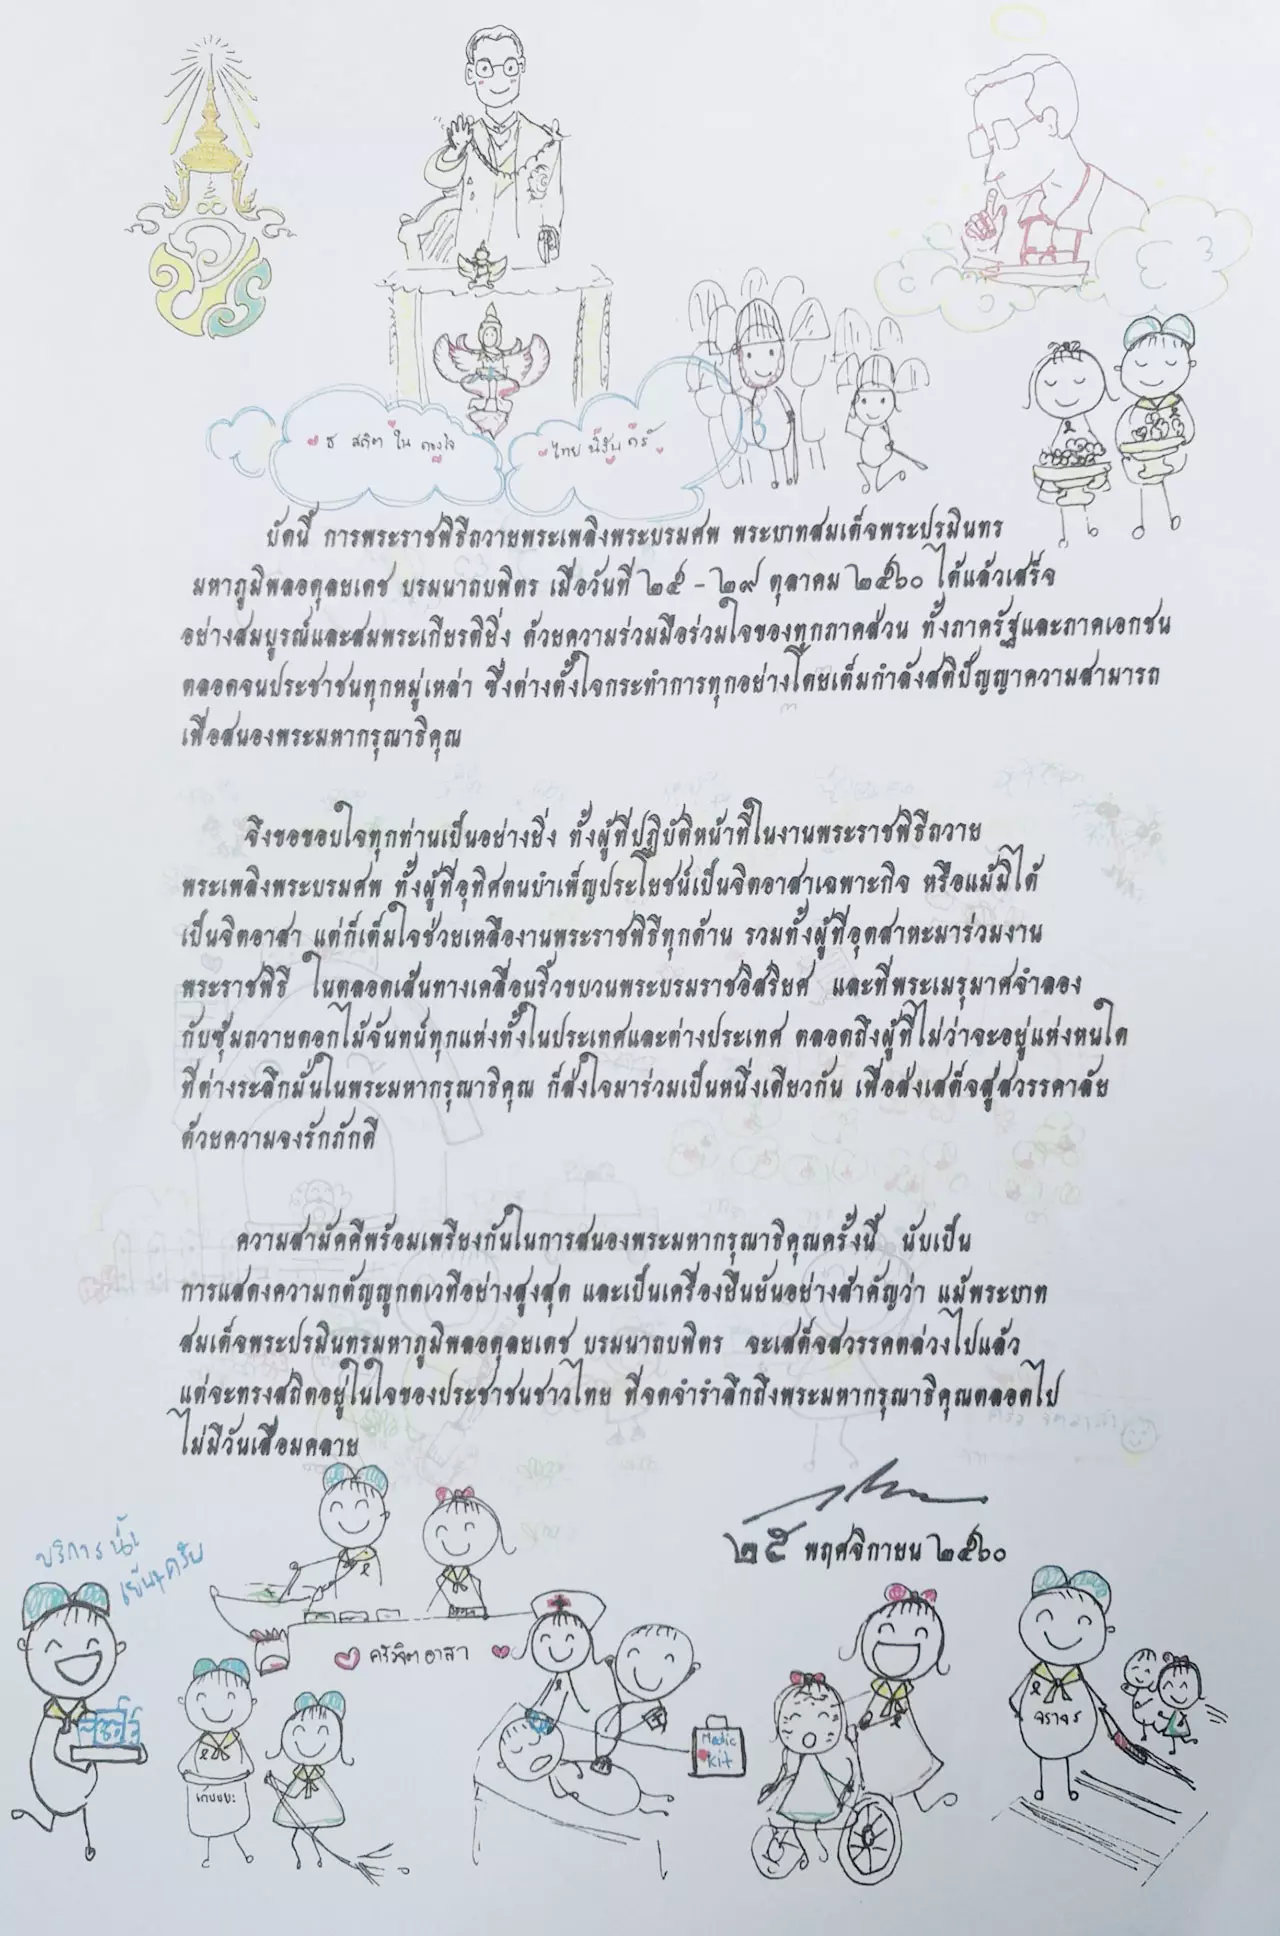 ธ สถิต ใน ดวงใจ
ไทย นิรันดร์
บัดนี้ การพระราชพิธีถวายพระเพลิงพระบรมศพ พระบาทสมเด็จพระปรมินทร
มหาภูมิพลอดุลยเดช บรมนาถบพิตร เมื่อวันที่ ๒๕ - ๒๙ ตุลาคม ๒๕๖๐ ได้แล้วเสร็จ
อย่างสมบูรณ์และสมพระเกียรติยิ่ง ด้วยความร่วมมือร่วมใจของทุกภาคส่วน ทั้งภาครัฐและภาคเอกชน
ตลอดจนประชาชนทุกหมู่เหล่า ซึ่งต่างตั้งใจกระทำการทุกอย่างโดยเต็มกำลังสติปัญญาความสามารถ
เพื่อสนองพระมหากรุณาธิคุณ
จึงขอขอบใจทุกท่านเป็นอย่างยิ่ง ทั้งผู้ที่ปฏิบัติหน้าที่ในงานพระราชพิธีถวาย
พระเพลิงพระบรมศพ ทั้งผู้ที่อุทิศตนบำเพ็ญประโยชน์เป็นจิตอาสาเฉพาะกิจ หรือแม้มิได้
เป็นจิตอาสา แต่ก็เต็มใจช่วยเหลืองานพระราชพิธีทุกด้าน รวมทั้งผู้ที่อุตสาหะมาร่วมงาน
พระราชพิธี ในตลอดเส้นทางเคลื่อนริ้วขบวนพระบรมราชอิสริยยศ และที่พระเมรุมาศจำลอง
กับซุ้มถวายดอกไม้จันทน์ทุกแห่งทั้งในประเทศและต่างประเทศ ตลอดถึงผู้ที่ไม่ว่าจะอยู่แห่งหนใด
ที่ต่างระลึกมั่นในพระมหากรุณาธิคุณ ก็ส่งใจมาร่วมเป็นหนึ่งเดียวกัน เพื่อส่งเสด็จสู่สวรรคาลัย
ด้วยความจงรักภักดี
ความสามัคคีพร้อมเพรียงกันในการสนองพระมหากรุณาธิคุณครั้งนี้ นับเป็น
การแสดงความกตัญญูกตเวทีอย่างสูงสุด และเป็นเครื่องยืนยันอย่างสำคัญว่า แม้พระบาท
สมเด็จพระปรมินทรมหาภูมิพลอดุลยเดช บรมนาถบพิตร จะเสด็จสวรรคตล่วงไปแล้ว
แต่จะทรงสถิตอยู่ในใจของประชาชนชาวไทย ที่จดจำรำลึกถึงพระมหากรุณาธิคุณตลอดไป
ไม่มีวันเสื่อมคลาย
๒๕ พฤศจิกายน ๒๕๖๐
บริการน้ำ
เย็นๆครับ
ครัวจิตอาสา
เก็บขยะ
Medic
Kit
จราจร